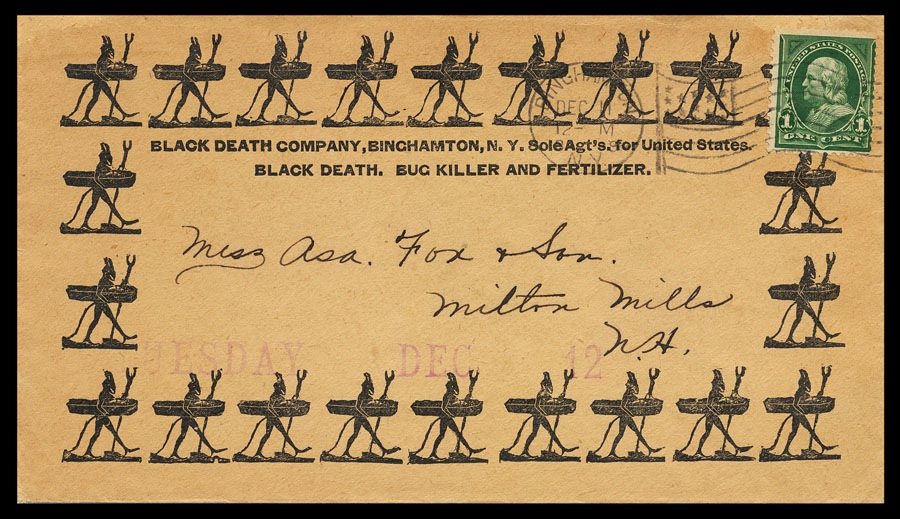 UNITED STATES POSTAGE
1 1
ONE CENT
BINGHAMTON
DEC 11
12- M
N.Y.
BLACK DEATH COMPANY, BINGHAMTON, N. Y. Sole Agt's. for United States.
BLACK DEATH. BUG KILLER AND FERTILIZER.
Mess Asa. Fox & Son.
Milton Mills
N.H.
TUESDAY DEC 12